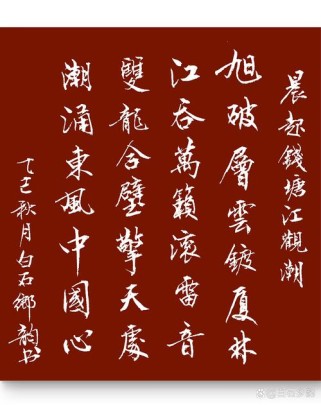 晨起錢塘江觀潮
旭破層雲鍍厦林
江吞萬籟滚雷音
雙龍合璧擎天處
潮涌東風中國心
乙巳秋月白石鄉韵书